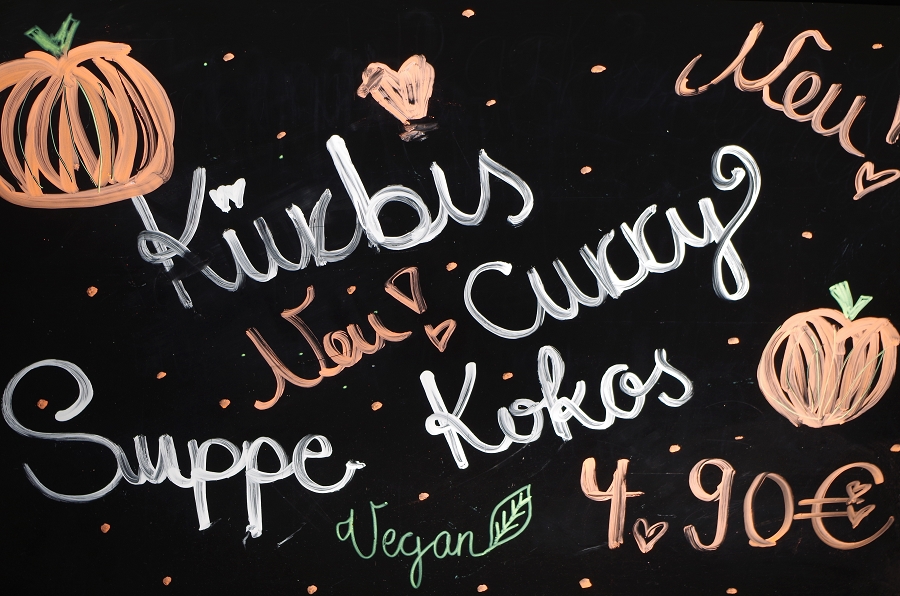 Neu!
Kürbis
Curry
Neu!
Kokos
Suppe
4.90€
Vegan